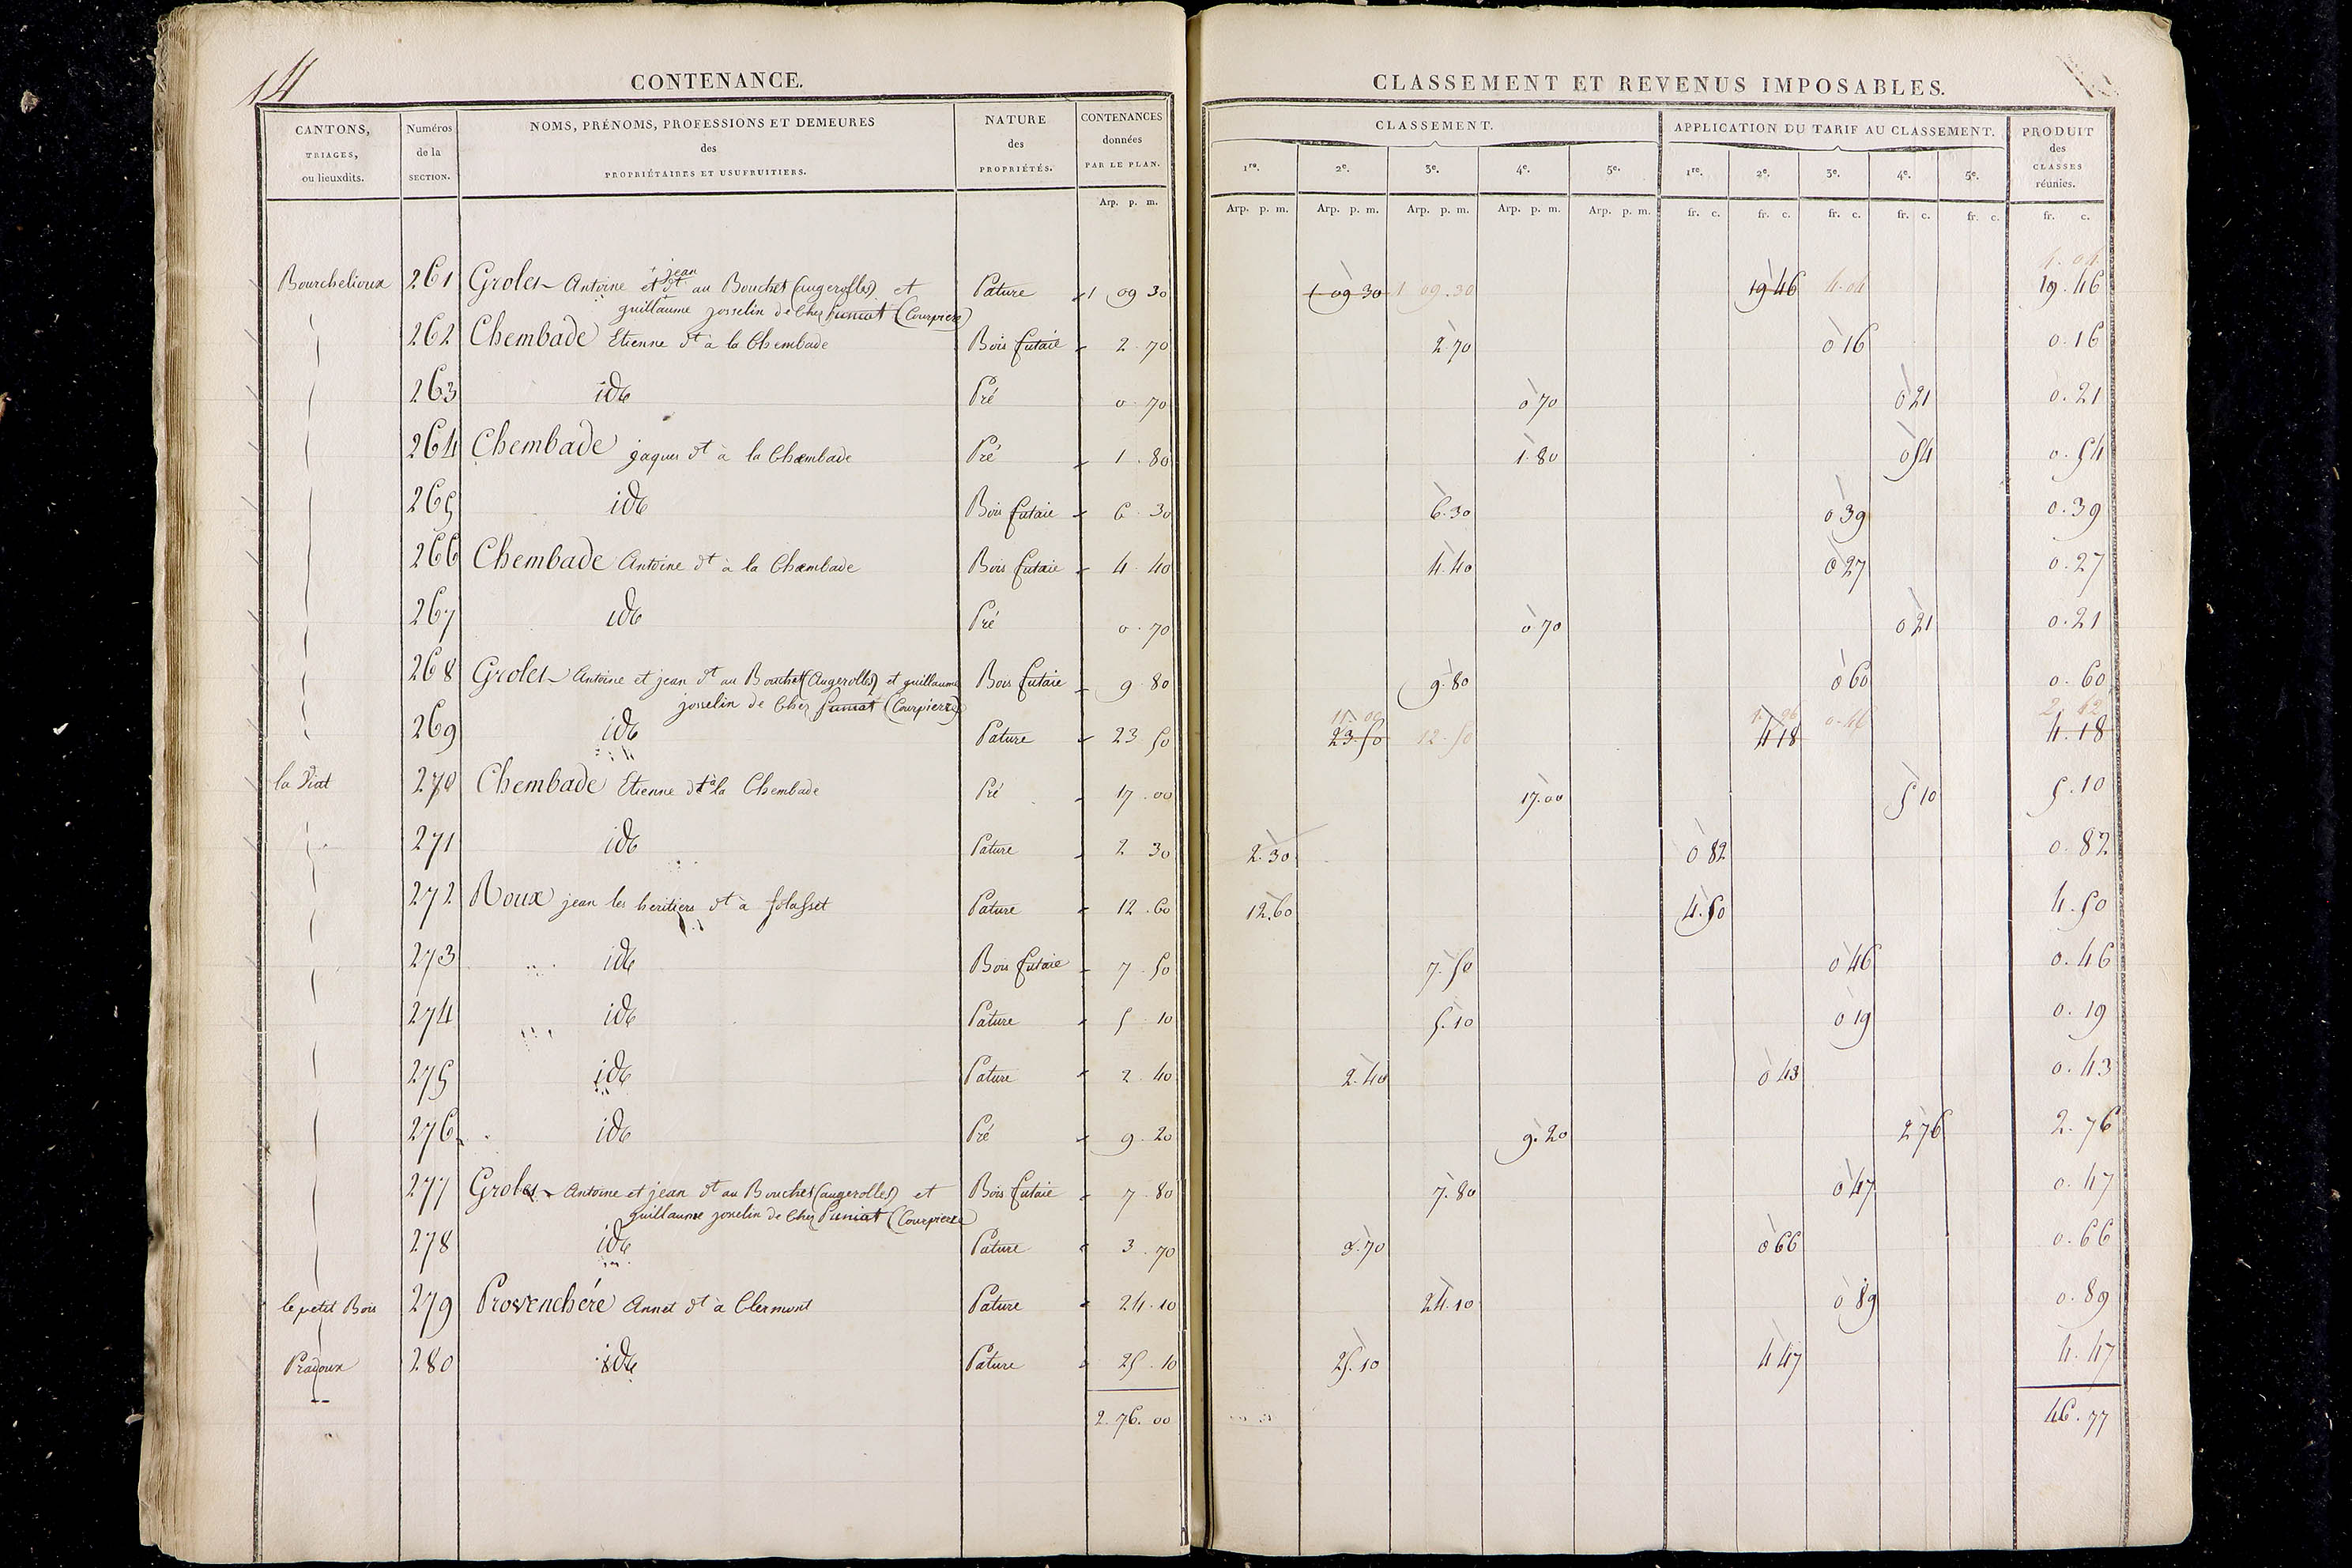 14
CONTENANCE.
CANTONS, TRIAGES, ou lieuxdits.
Numéros de la SECTION.
NOMS, PRÉNOMS, PROFESSIONS ET DEMEURES des PROPRIÉTAIRES ET USUFRUITIERS.
NATURE des PROPRIÉTÉS.
CONTENANCES données PAR LE PLAN.
Arp. p. m.
CLASSEMENT ET REVENUS IMPOSABLES.
CLASSEMENT.
APPLICATION DU TARIF AU CLASSEMENT.
PRODUIT des CLASSES réunies.
1re. 2e. 3e. 4e. 5e. 1re. 2e. 3e. 4e. 5e.
Arp. p. m. Arp. p. m. Arp. p. m. Arp. p. m. Arp. p. m. fr. c. fr. c. fr. c. fr. c. fr. c. fr. c.
4.04
Bourchelioux 261 Groles Antoine et jean dt au Bouchet (augerolles) et Pature 1 09 30 1 09 30 1 09.30 19 46 4.04 19.46
guillaume josselin de Chez (Courpiere)
262 Chembade Etienne dt à la Chembade Bois futaie 2.70 2.70 0 16 0.16
263 ide Pré 0.70 0 70 0 21 0.21
264 Chembade jaques dt à la Chambade Pré 1.80 1.80 0 54 0.54
265 ide Bois futaie 6.30 6.30 0 39 0.39
266 Chembade Antoine dt à la Chambade Bois futaie 4.40 4.40 0 27 0.27
267 ide Pré 0.70 0 70 0 21 0.21
268 Groles Antoine et jean dt au Bouchet (Augerolles) et guillaume Bois futaie 9.80 9.80 0 60 0.60
josselin de Chez (Courpierre)
11.00 1.96 2.42
269 ide Pature 23.50 23.50 12.50 4 18 0.46 4.18
la Viat 270 Chembade Etienne dt à la Chembade Pré 17.00 17.00 5 10 5.10
271 ide Pature 2 30 2.30 0 82 0.82
272 Roux jean les heritiers dt à Pature 12.60 12.60 4.50 4.50
273 ide Bois futaie 7.50 7.50 0 46 0.46
274 ide Pature 5.10 5.10 0 19 0.19
275 ide Pature 2.40 2.40 0 43 0.43
276 ide Pré 9.20 9.20 2 76 2.76
277 Groles Antoine et jean dt au Bouchet (augerolles) et Bois futaie 7.80 7.80 0 47 0.47
guillaume josselin de Chez (Courpierre)
278 ide Pature 3.70 3.70 0 66 0.66
le petit Bois 279 Provenchére Annet dt à Clermont Pature 24.10 24.10 0 89 0.89
Pradoux 280 ide Pature 25.10 25.10 4 47 4.47
2.76.00 46.77